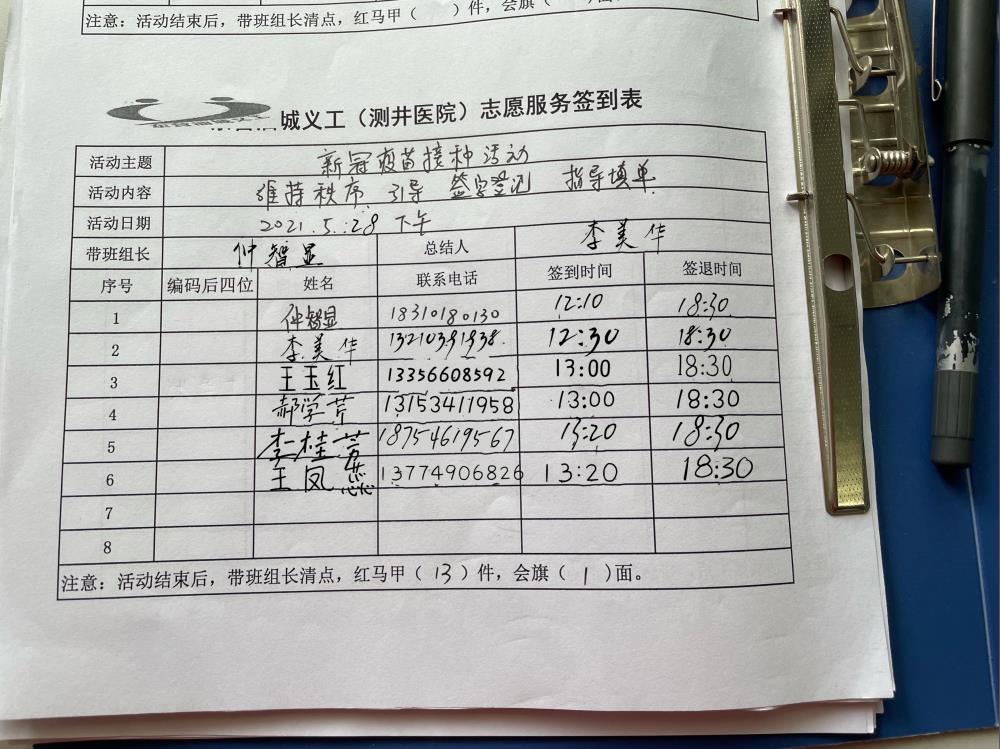 注意：活动结束后，带班组长清点，红马甲（ ）件，会旗（ ）面。
城义工（测井医院）志愿服务签到表
活动主题 新冠疫苗接种活动
活动内容 维持秩序 引导 签字登记 指导填单
活动日期 2021.5.28 下午
带班组长 仲智显 总结人 李美华
序号 编码后四位 姓名 联系电话 签到时间 签退时间
1 仲智显 18310180130 12:10 18:30
2 李美华 13210391938 12:30 18:30
3 王玉红 13356608592 13:00 18:30
4 郝学芹 13153411958 13:00 18:30
5 李桂芳 18754619567 13:20 18:30
6 王凤 13774906826 13:20 18:30
7
8
注意：活动结束后，带班组长清点，红马甲（13）件，会旗（1）面。